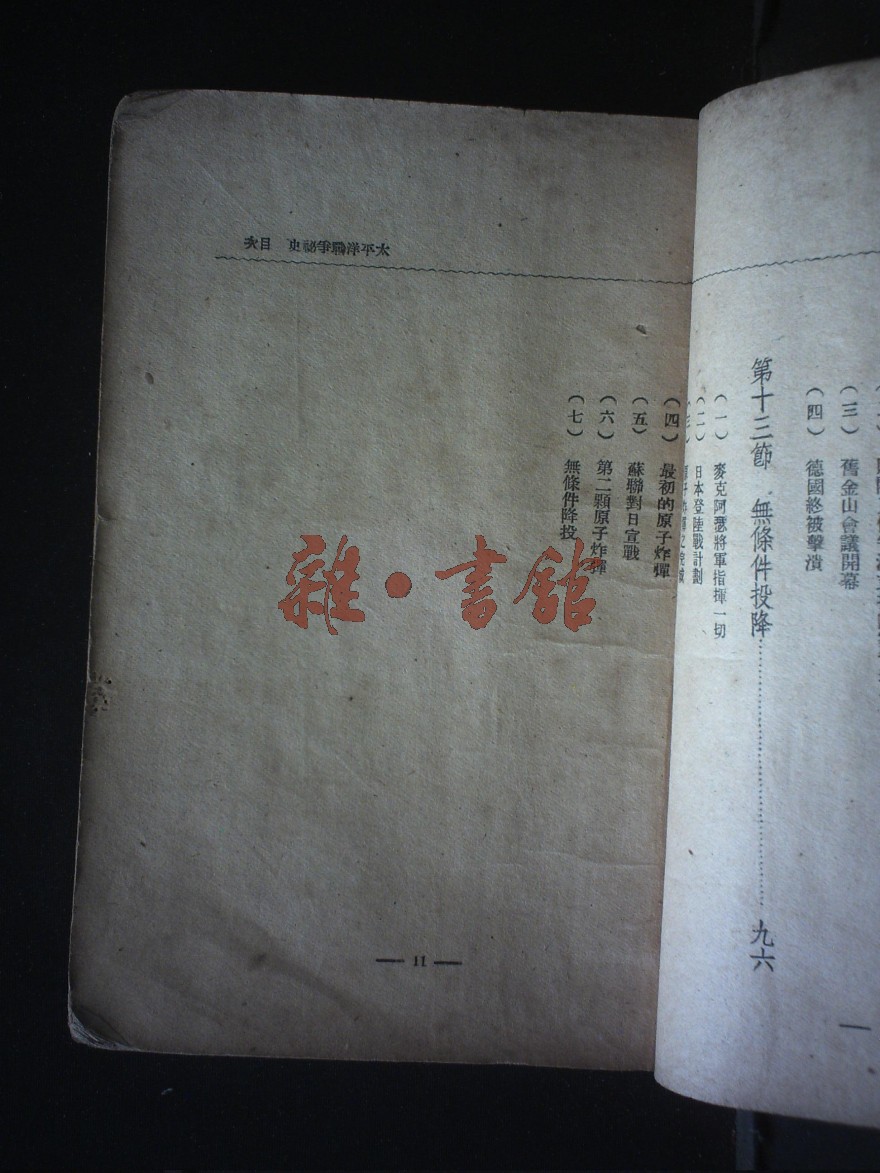 (三) 舊金山會議開幕
(四) 德國終被擊潰
第十三節 無條件投降……九六
(一) 麥克阿瑟將軍指揮一切
(二) 日本登陸戰計劃
太平洋戰爭祕史 目次
(四) 最初的原子炸彈
(五) 蘇聯對日宣戰
(六) 第二顆原子炸彈
(七) 無條件降投
— 11 —
雜·書館